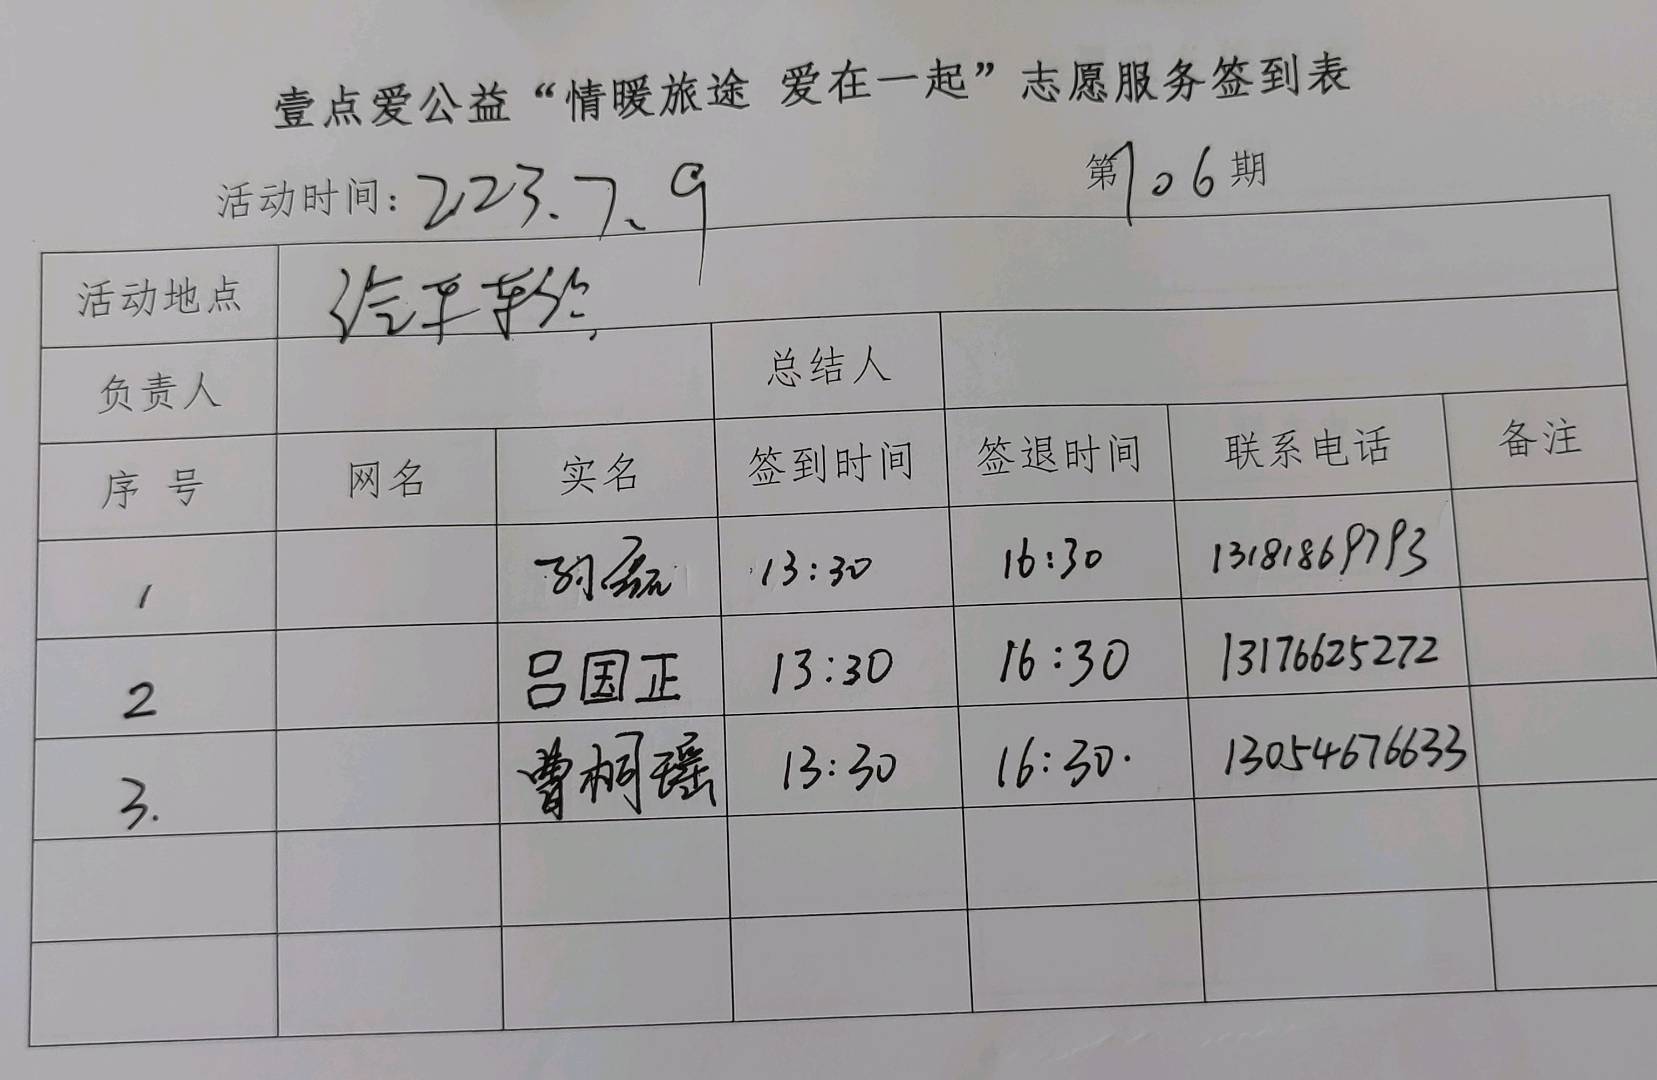 壹点爱公益“情暖旅途 爱在一起”志愿服务签到表
活动时间: 223.7.9 第106期
活动地点 汽车
负责人 总结人
序号 网名 实名 签到时间 签退时间 联系电话 备注
1 孙磊 13:30 16:30 13181869793
2 吕国正 13:30 16:30 13176625272
3. 曹桐瑶 13:30 16:30. 13054676633